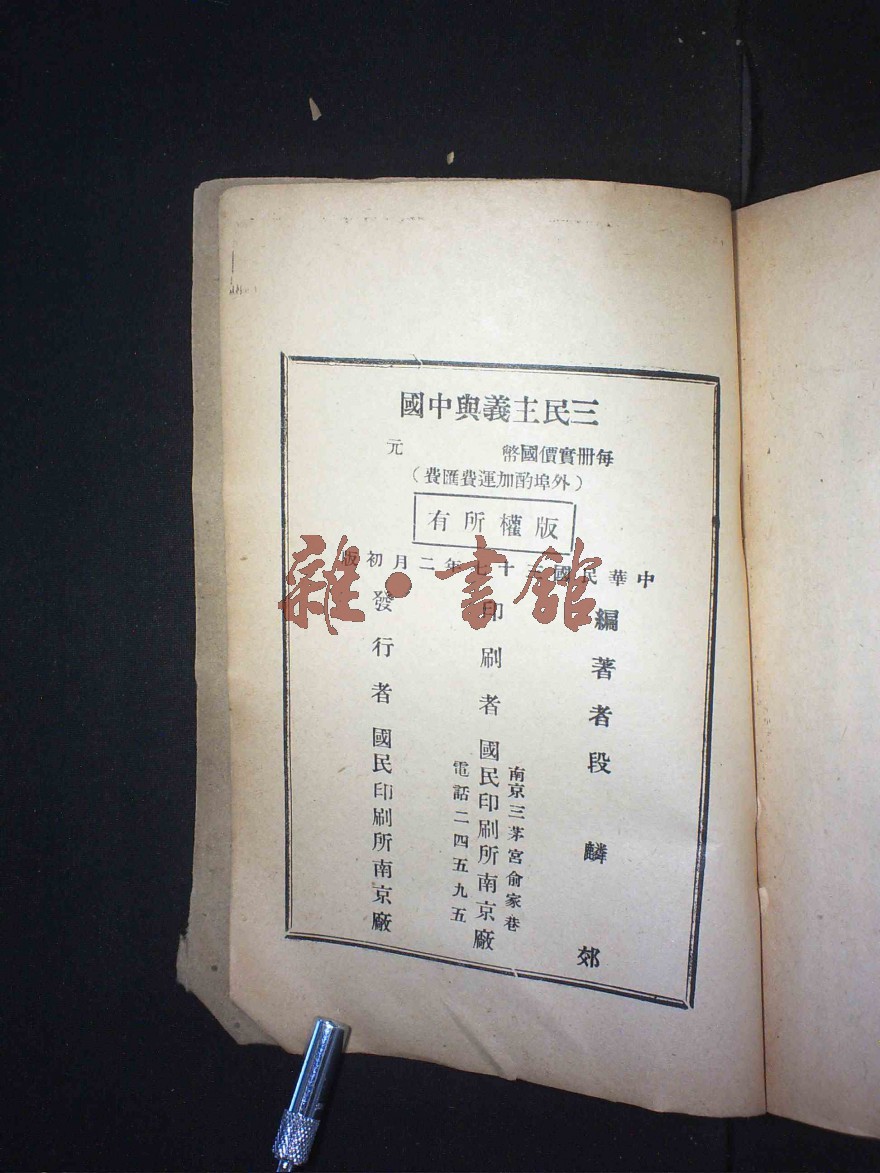 三民主義與中國
每冊實價國幣 元
(外埠酌加運費匯費)
版權所有
中華民國三十七年二月初版
編著者段麟郊
南京三茅宮俞家巷
印刷者國民印刷所南京廠
電話二四五九五
發行者國民印刷所南京廠
雜·書館